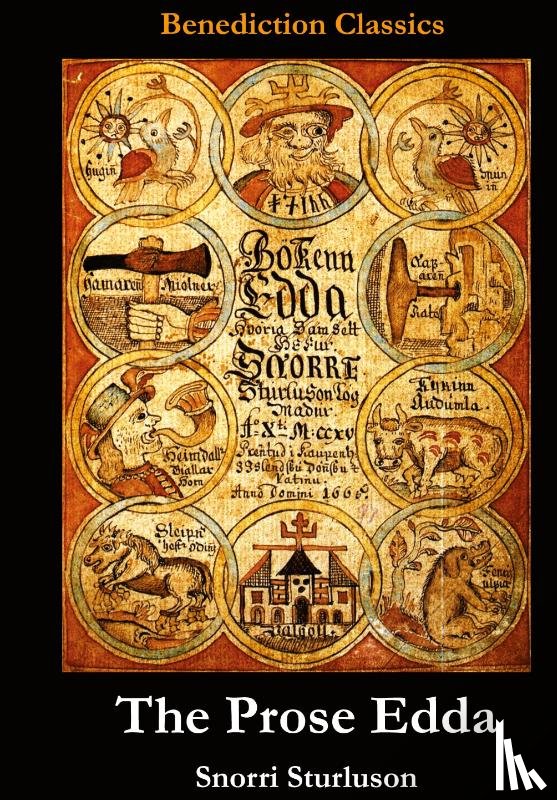 Benediction Classics
Hugin
Munin
Hamaren Miolner
Bokenn
Edda
Hvoria Samsett
Hefur
SNORRE
Sturluson log
Madur
Ao Xti M:CCXV
Prentud i Kaupenh
Anno Domini 1665
Kyrinn
Audumla
Heimdall
Giallar
Horn
Sleipn
hestr odins
valholl
The Prose Edda
Snorri Sturluson